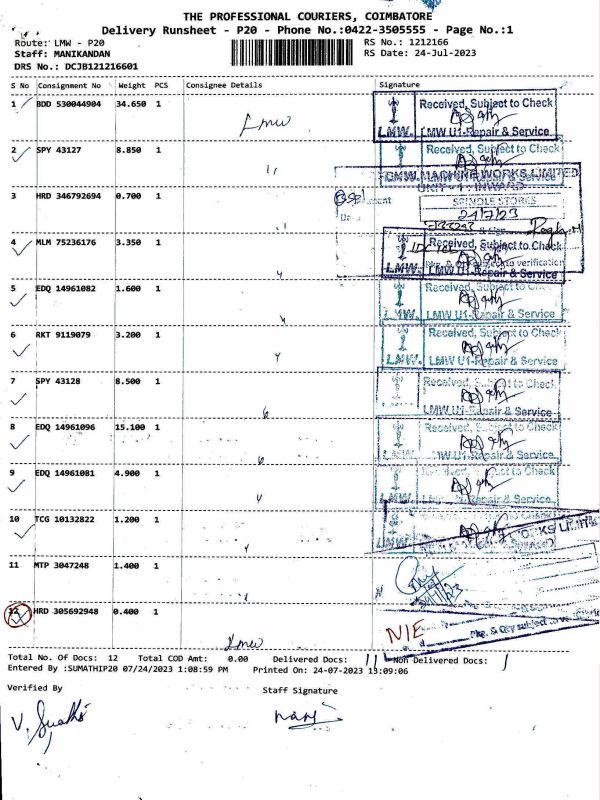 THE PROFESSIONAL COURIERS, COIMBATORE
Delivery Runsheet - P20 - Phone No.:0422-3505555 - Page No.:1
Route: LMW - P20 RS No.: 1212166
Staff: MANIKANDAN RS Date: 24-Jul-2023
DRS No.: DCJB121216601
S No Consignment No Weight PCS Consignee Details Signature
1 BDD 530044904 34.650 1 Lmw
Received, Subject to Check
LMW. LMW U1-Repair & Service
2 SPY 43127 8.850 1 "
Received, Subject to Check
LMW U1-Repair & Service
MACHINE WORKS LIMITED
UNIT - 1 : INWARD
3 HRD 346792694 0.700 1
SPINDLE STORES
24/7/23
4 MLM 75236176 3.350 1 "
Received, Subject to Check
subject to verification
LMW. LMW U1-Repair & Service
5 EDQ 14961082 1.600 1 "
Received, Subject to Check
LMW. LMW U1-Repair & Service
6 RKT 9119079 3.200 1 "
Received, Subject to Check
LMW. LMW U1-Repair & Service
7 SPY 43128 8.500 1
Received, Subject to Check
LMW U1-Repair & Service
8 EDQ 14961096 15.100 1
Received, Subject to Check
LMW U1-Repair & Service
9 EDQ 14961081 4.900 1 "
Subject to Check
LMW. LMW U1-Repair & Service
10 TCG 10132822 1.200 1 "
LMW.
WORKS LIMITED
11 MTP 3047248 1.400 1
12 HRD 305692948 0.400 1 Lmw
NIE
& Qty subject to verification
Total No. Of Docs: 12 Total COD Amt: 0.00 Delivered Docs: 11 Non Delivered Docs: 1
Entered By :SUMATHIP20 07/24/2023 1:08:59 PM Printed On: 24-07-2023 13:09:06
Verified By Staff Signature